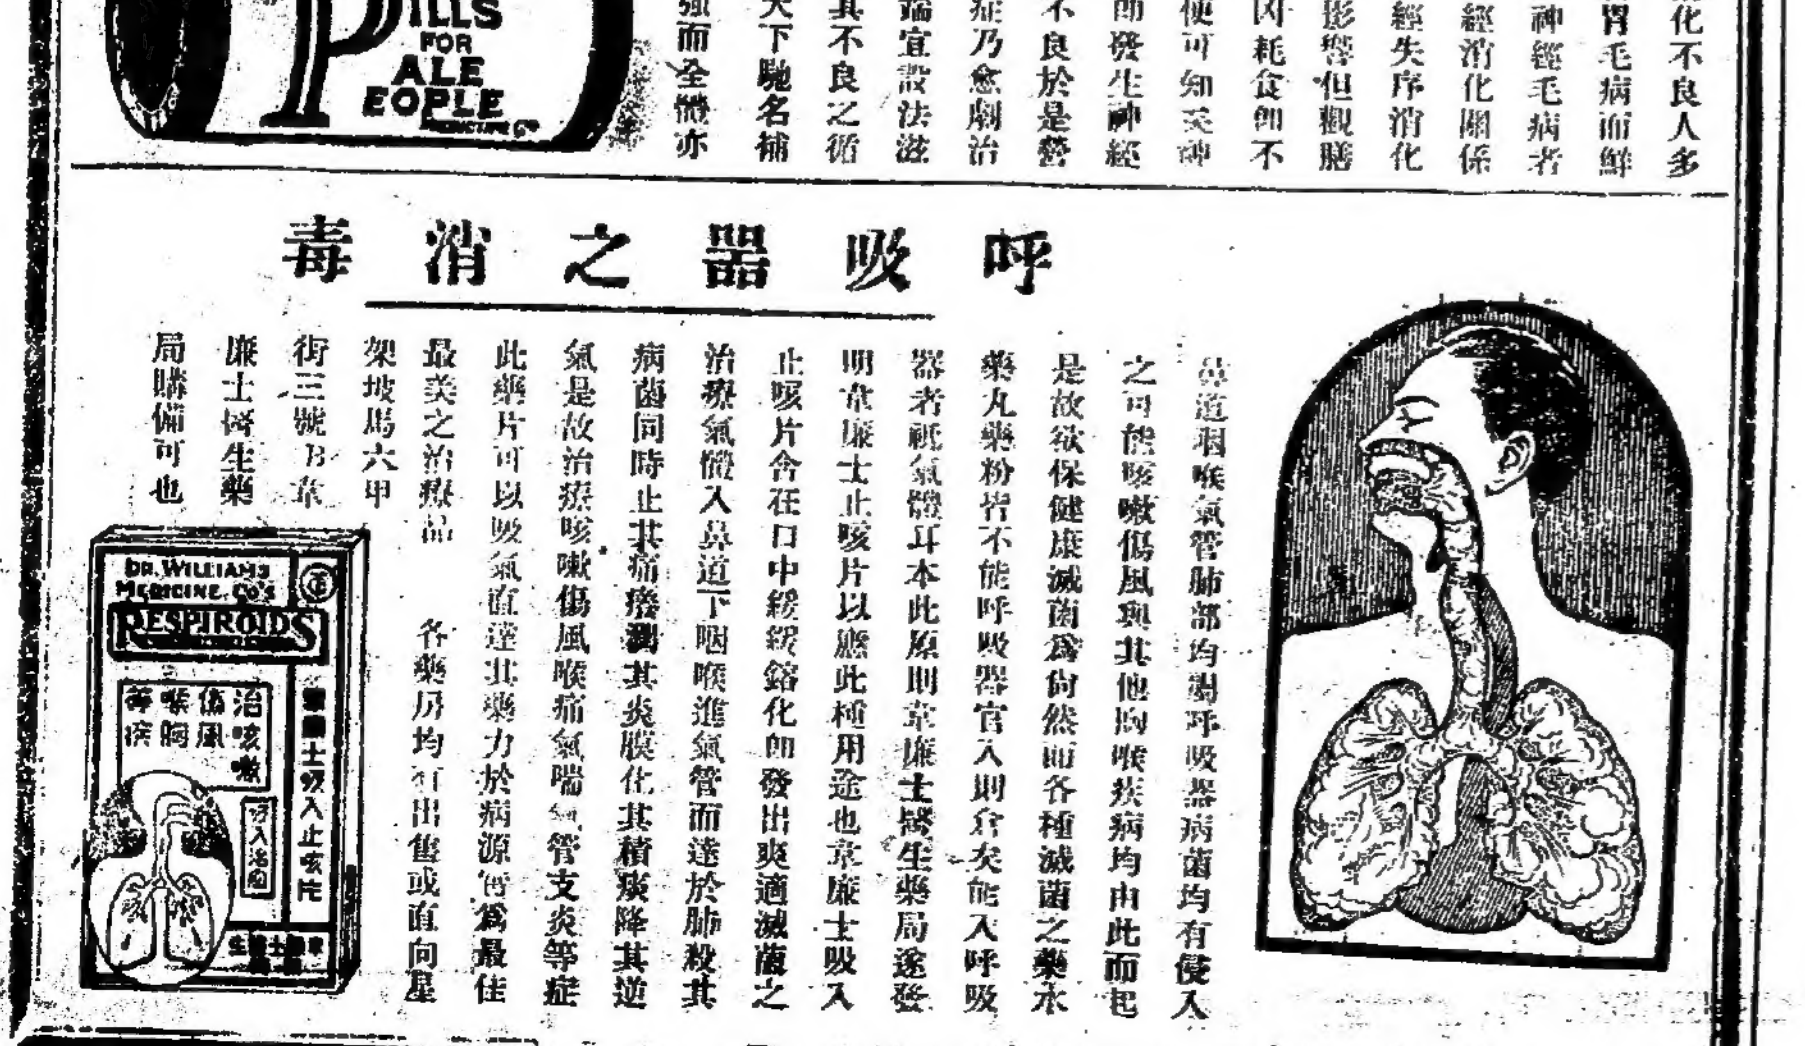 化不良人多
胃毛病而鮮
神經毛病者
經消化關係
經失序消化
影響但觀膳
因耗食卽不
便可知至神
卽發生神經
不良於是營
症乃愈劇治
端宜設法滋
其不良之循
天下馳名補
强而全體亦
PILLS
FOR
ALE
EOPLE
MEDICINE Co
呼吸器之消毒
鼻道咽喉氣管肺部均屬呼吸器病菌均有侵入
之可能咳嗽傷風與其他胸喉疾病均由此而起
是故欲保健康滅菌爲尙然而各種滅菌之藥水
藥丸藥粉皆不能呼吸器官入則食矣能入呼吸
器者祗氣體耳本此原則韋廉士醫生藥局遂發
明韋廉士止咳片以應此種用途也韋廉士吸入
止咳片含在口中緩緩鎔化卽發出爽適滅菌之
治療氣體入鼻道下咽喉進氣管而達於肺殺其
病菌同時止其痛癢潤其炎膜化其積痰降其逆
氣是故治療咳嗽傷風喉痛氣喘氣管支炎等症
此藥片可以吸氣直達其藥力於病源實爲最佳
最美之治療品 各藥房均有出售或直向星
架坡馬六甲
街三號B韋
廉士醫生藥
局購備可也
DR. WILLIAMS
MEDICINE Co'S
RESPIROIDS
治咳嗽
傷風
喉胸
等疾
吸入治
韋廉士吸入止咳片
韋廉士醫生